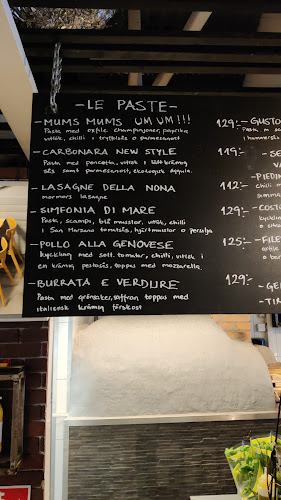 - LE PASTE -
- MUMS MUMS UM UM!!! 129:-
Pasta med oxfile, champinjoner, paprika
vitlök, chilli i tryffelsås o parmesanost
- CARBONARA NEW STYLE 119:-
Pasta med pancetta, vitlök i lättkrämig
sås samt parmesanost, ekologisk äggula.
- LASAGNE DELLA NONA 112:-
mormors lasagne
- SIMFONIA DI MARE 129:-
Pasta, scampi, blå musslor, vitlök, chilli
i San Marzano tomatsås, hjärtmusslor o persilja
- POLLO ALLA GENOVESE 125:-
Kyckling med solt. tomater, chilli, vitlök i
en krämig pestosås, toppas med mozzarella.
- BURRATA E VERDURE 129:-
Pasta med grönsaker, saffran toppas med
italiensk krämig färskost
- GUSTO
Pasta m
i hummer
- SE
VA
- PIEDIN
chilli m
- COST
kyckling
- FILE
oxfile
o ba
- GE
- TIR